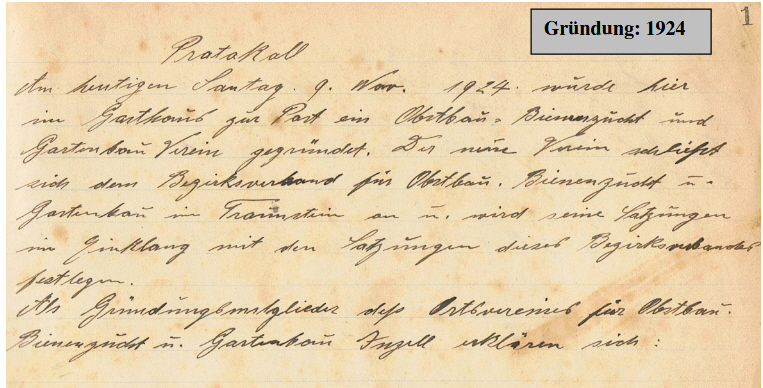 Gründung: 1924
1
Protokoll
Am heutigen Sontag. 9. Nov. 1924. wurde hier
im Gasthaus zur Post ein Obstbau- Bienenzucht und
Gartenbau Verein gegründet. Der neue Verein schließt
sich dem Bezirksverband für Obstbau. Bienenzucht u.
Gartenbau in Traunstein an u. wird seine Satzungen
im Einklang mit den Satzungen dieses Bezirksverbandes
festlegen.
Als Gründungsmitglieder deß Ortsvereines für Obstbau.
Bienenzucht u. Gartenbau Inzell erklären sich: